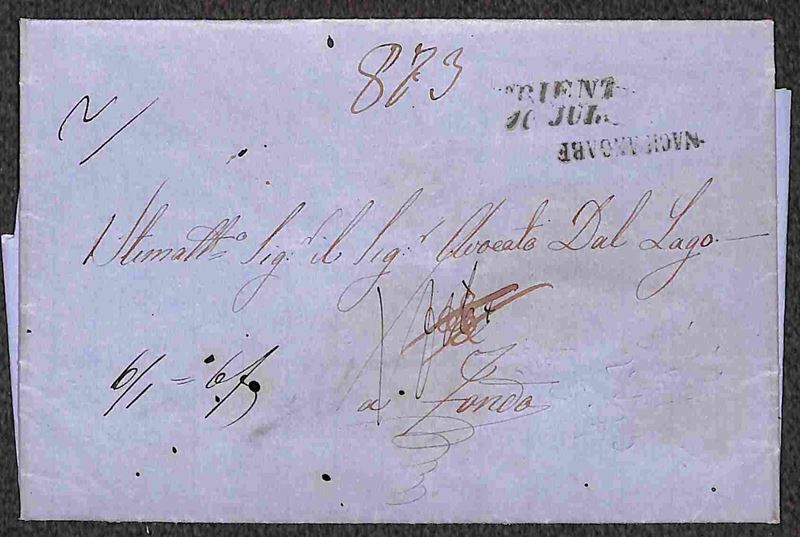 873
TRIENT
10 JUL
NACHNAHME
Stimattmo Sigr il Sigr Avocato Dal Lago
6/1 = 6/
a Fondo